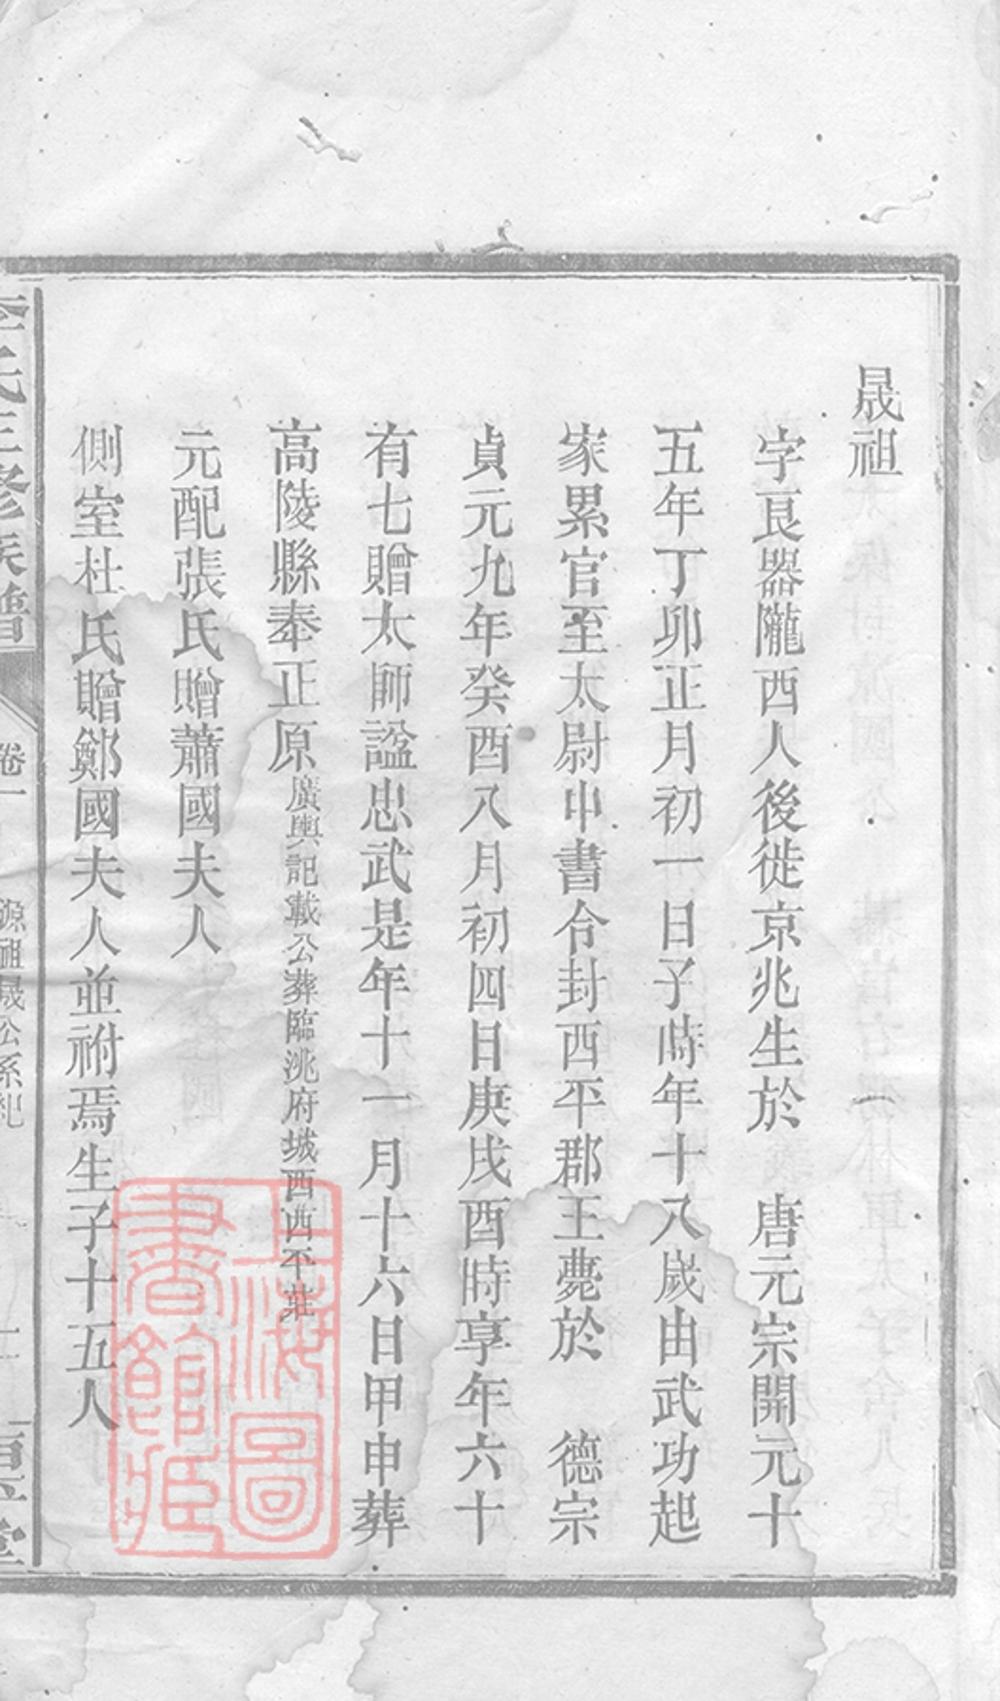 晟祖
字良器隴西人後徙京兆生於　唐元宗開元十
五年丁卯正月初一日子時年十八歲由武功起
家累官至太尉中書令封西平郡王薨於　德宗
貞元九年癸酉八月初四日庚戌酉時享年六十
有七贈太師諡忠武是年十一月十六日甲申葬
高陵縣奉正原廣輿記載公葬臨洮府城西西平莊
元配張氏贈蕭國夫人
側室杜氏贈鄭國夫人並祔焉生子十五人
李氏三修族譜
卷一
源祖晟公系紀
西平堂
上海圖書館藏